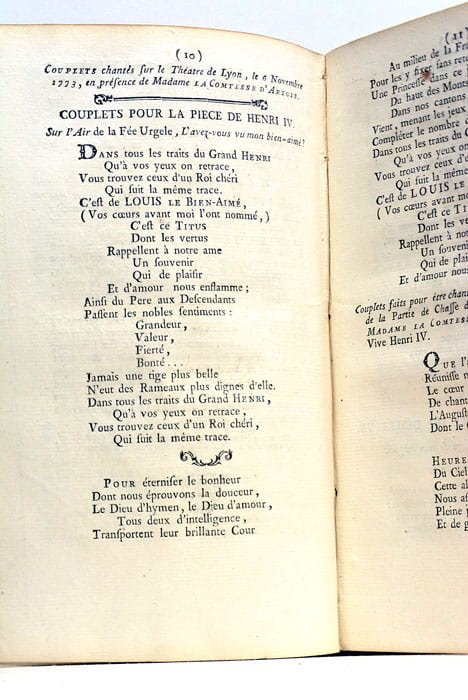 (10)
COUPLETS chantés sur le Théatre de Lyon, le 6 Novembre
1773, en présence de Madame LA COMTESSE D'ARTOIS.
COUPLETS POUR LA PIECE DE HENRI IV.
Sur l'Air de la Fée Urgele, L'avez-vous vu mon bien-aimé?
DANS tous les traits du Grand HENRI
Qu'à vos yeux on retrace,
Vous trouvez ceux d'un Roi chéri
Qui suit la même trace.
C'est de LOUIS LE BIEN-AIMÉ,
(Vos cœurs avant moi l'ont nommé,)
C'est ce TITUS
Dont les vertus
Rappellent à notre ame
Un souvenir
Qui de plaisir
Et d'amour nous enflamme;
Ainsi du Pere aux Descendants
Passent les nobles sentiments :
Grandeur,
Valeur,
Fierté,
Bonté...
Jamais une tige plus belle
N'eut des Rameaux plus dignes d'elle.
Dans tous les traits du Grand HENRI,
Qu'à vos yeux on retrace,
Vous trouvez ceux d'un Roi chéri,
Qui suit la même trace.
POUR éterniser le bonheur
Dont nous éprouvons la douceur,
Le Dieu d'hymen, le Dieu d'amour,
Tous deux d'intelligence,
Transportent leur brillante Cour
(11)
Au milieu de la Fra
Pour les y fixer sans reto
Une Princesse dans ce
Du haut des Monts
Dans nos cantons
Vient, menant les jeux
Compléter le nombre
Dans tous les traits du
Qu'à vos yeux on
Vous trouvez ceux d'
Qui suit la même
C'est de LOUIS LE
(Vos cœurs avant
C'est ce TI
Dont les ve
Rappellent à not
Un souve
Qui de pl
Et d'amour nous
Couplets faits pour être chant
de la Partie de Chasse d
MADAME LA COMTESS
Vive Henri IV.
QUE l'a
Réunisse n
Le cœur
De chant
L'August
Dont le
HEURE
Du Ciel
Cette al
Nous as
Pleine j
Et de g